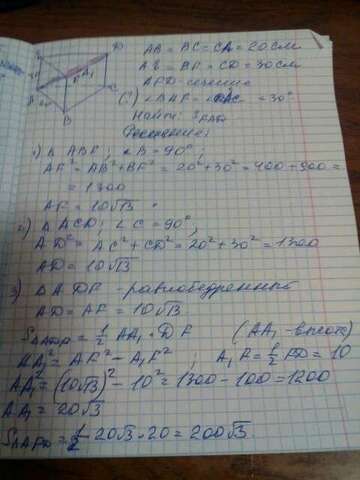 AB = BC = CA = 20 см
AE = BF = CD = 30 см
AFD - сечение
Найти: S
Решение:
1) Δ ABF; ∠B = 90°;
AF² = AB² + BF² = 20² + 30² = 400 + 900 =
= 1300
AF = 10√13
2) Δ ACD; ∠C = 90°;
AD² = AC² + CD² = 20² + 30² = 1300
AD = 10√13
3) Δ ADF - равнобедренный
AD = AF = 10√13
S = ½ AA₁ · DF (AA₁ - высота)
AA₁² = AF² - A₁F² ; A₁F = ½ FD = 10
AA₁² = (10√13)² - 10² = 1300 - 100 = 1200
AA₁ = 20√3
S = ½ · 20√3 · 20 = 200√3.